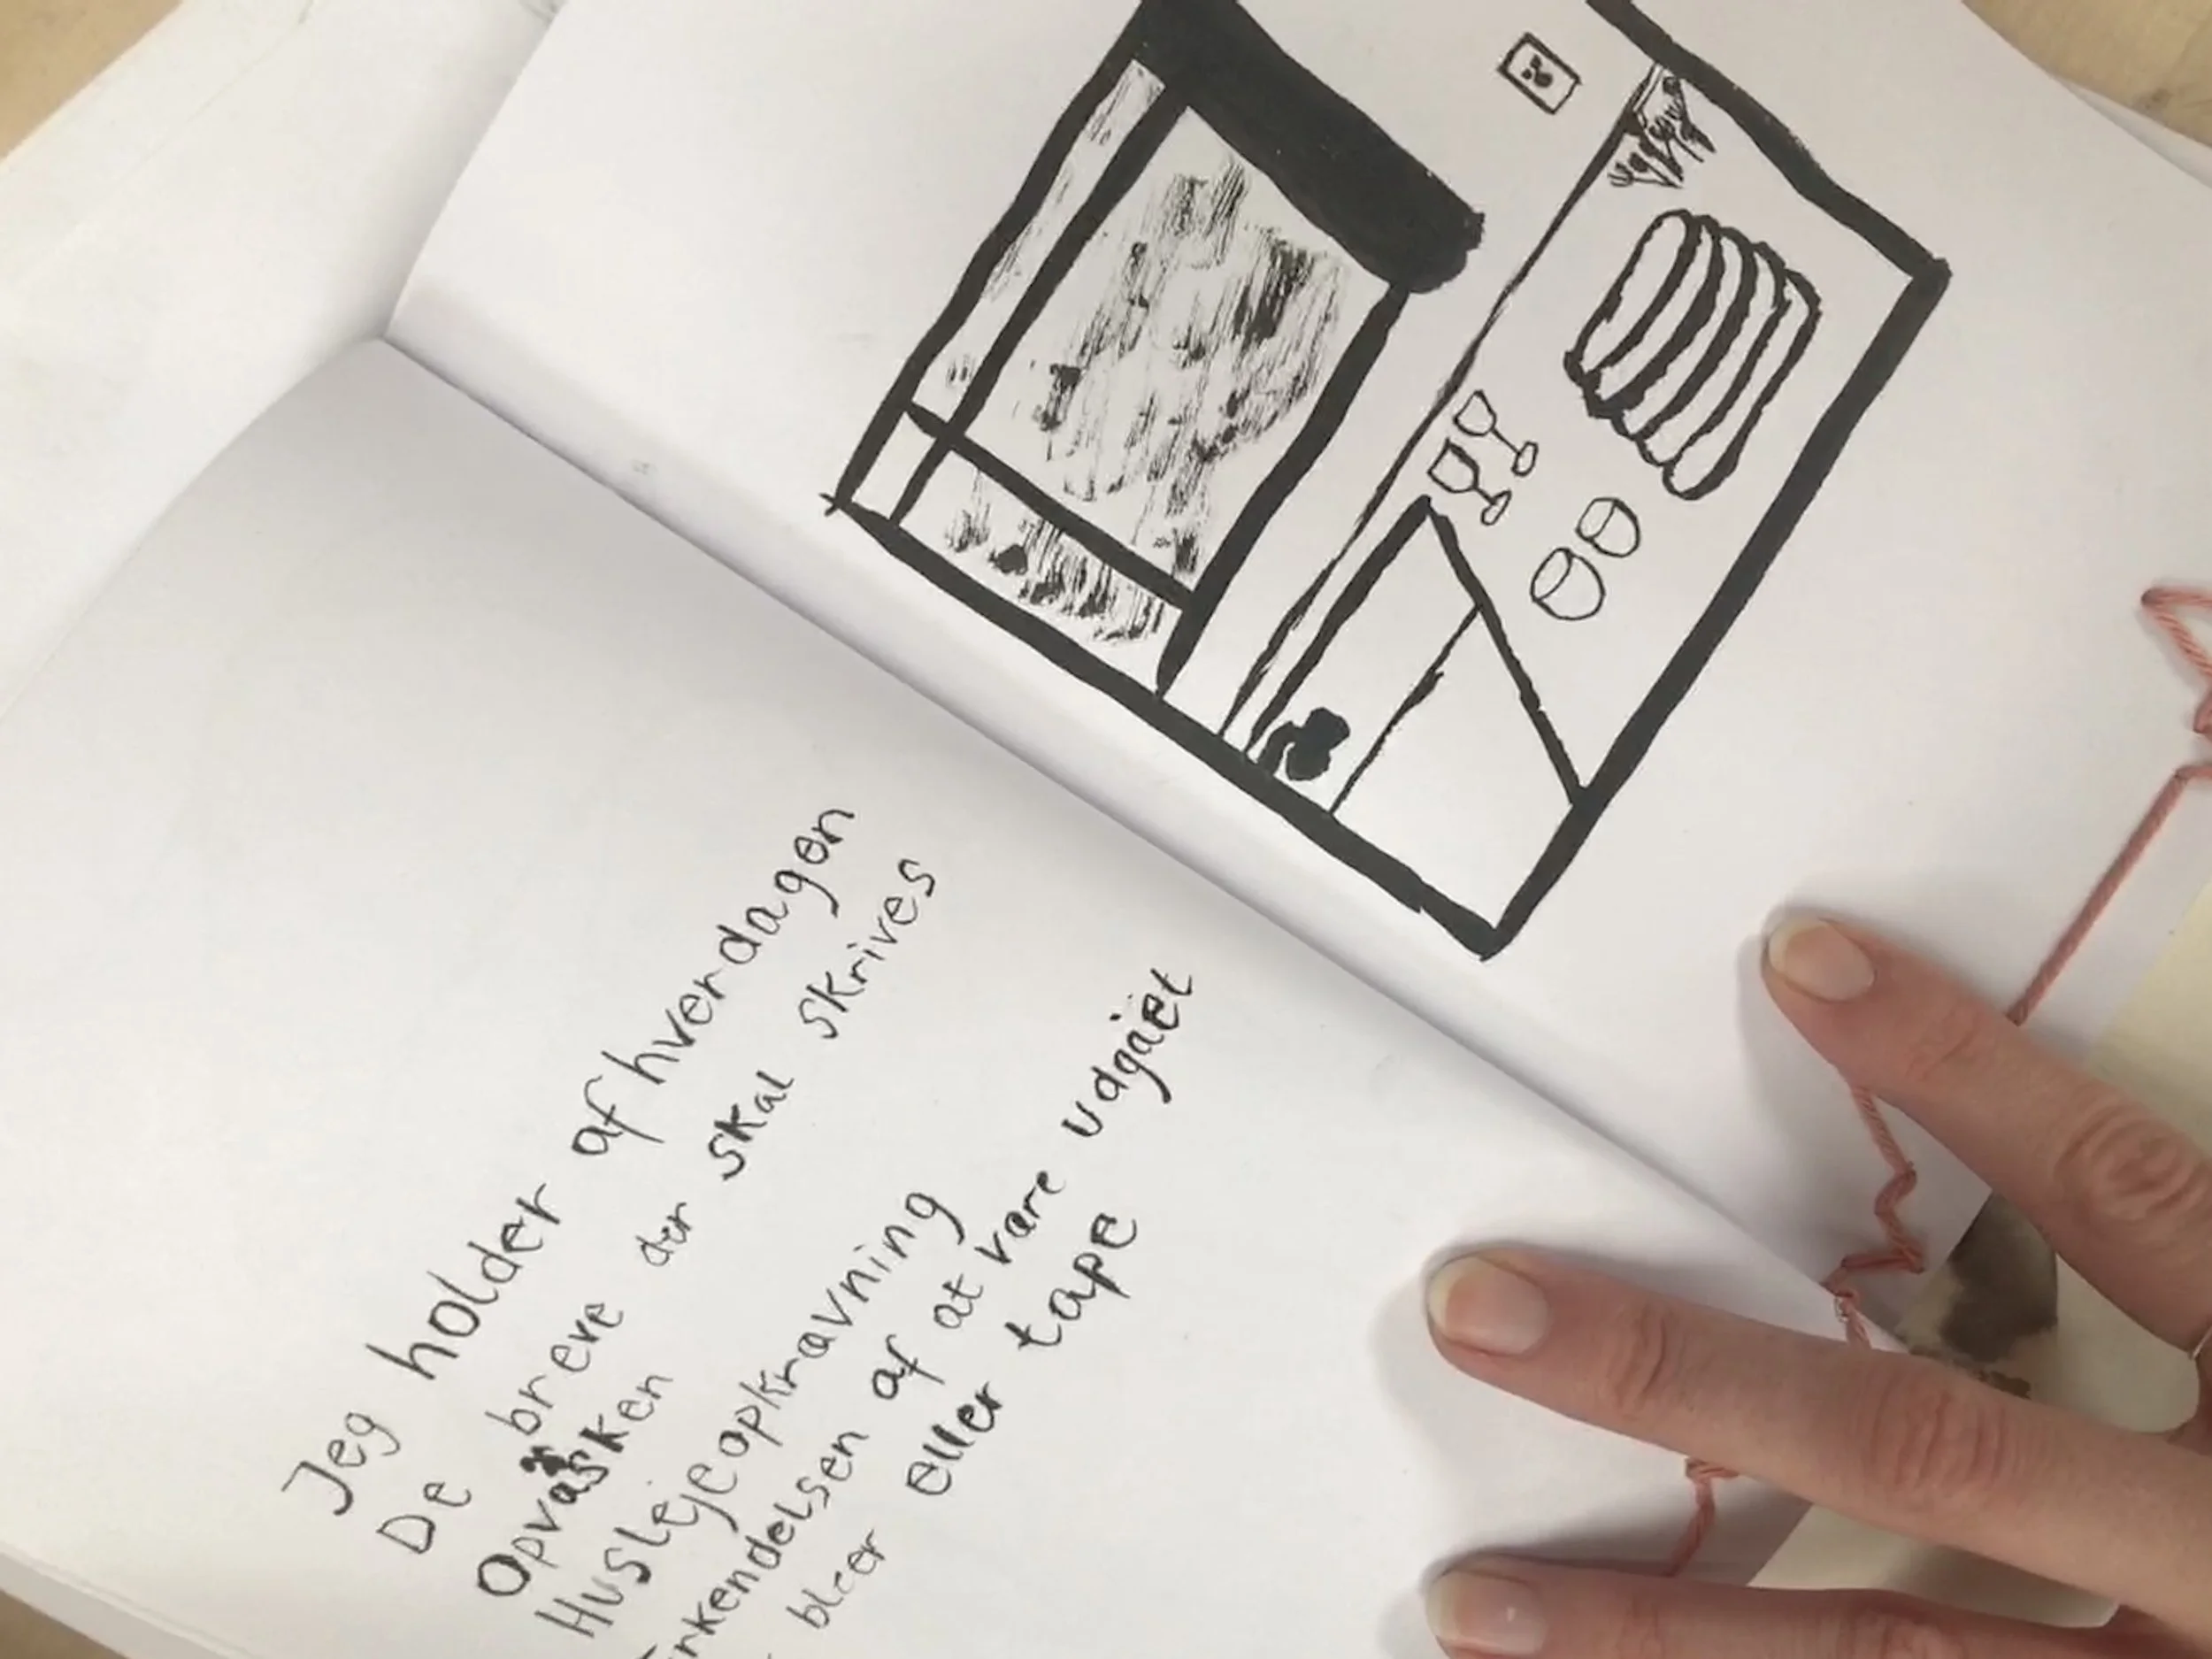 Jeg holder af hverdagen
De breve der skal skrives
Opvasken
Huslejeopkrævning
erkendelsen af at være udgået
bleer eller tape